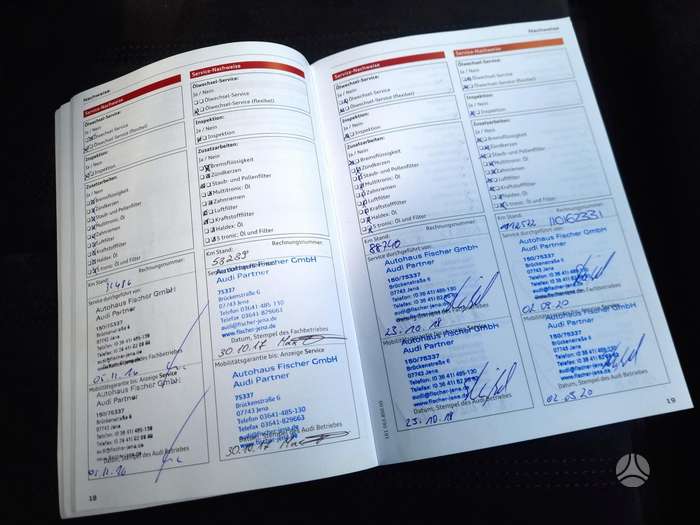 Nachweise
Service-Nachweise
Ölwechsel-Service:
Ja / Nein
Ölwechsel-Service
Ölwechsel-Service (flexibel)
Inspektion:
Ja / Nein
Inspektion
Zusatzarbeiten:
Ja / Nein
Bremsflüssigkeit
Zündkerzen
Staub- und Pollenfilter
Multitronic: Öl
Zahnriemen
Luftfilter
Kraftstofffilter
Haldex: Öl
S tronic: Öl und Filter
Km Stand:
Rechnungsnummer:
Service durchgeführt von:
Autohaus Fischer GmbH
Audi Partner
150/75337
Brückenstraße 6
07743 Jena
05.11.16
Mobilitätsgarantie bis: Anzeige Service
Autohaus Fischer GmbH
Audi Partner
150/75337
Brückenstraße 6
07743 Jena
Datum, Stempel des Audi Betriebes
18
Service-Nachweise
Ölwechsel-Service:
Ja / Nein
Ölwechsel-Service
Ölwechsel-Service (flexibel)
Inspektion:
Ja / Nein
Inspektion
Zusatzarbeiten:
Ja / Nein
Bremsflüssigkeit
Zündkerzen
Staub- und Pollenfilter
Multitronic: Öl
Zahnriemen
Luftfilter
Kraftstofffilter
Haldex: Öl
S tronic: Öl und Filter
Km Stand:
Rechnungsnummer:
58289
Autohaus Fischer GmbH
Audi Partner
75337
Brückenstraße 6
07743 Jena
Telefon 03641-485-130
Telefax 03641-829663
audi@fischer-jena.de
www.fischer-jena.de
Datum, Stempel des Fachbetriebes
30.10.17
Mobilitätsgarantie bis: Anzeige Service
Autohaus Fischer GmbH
Audi Partner
75337
Brückenstraße 6
07743 Jena
Telefon 03641-485-130
Telefax 03641-829663
audi@fischer-jena.de
www.fischer-jena.de
Datum, Stempel des Audi Betriebes
30.10.17
Nachweise
Service-Nachweise
Ölwechsel-Service:
Ja / Nein
Ölwechsel-Service
Ölwechsel-Service (flexibel)
Inspektion:
Ja / Nein
Inspektion
Zusatzarbeiten:
Ja / Nein
Bremsflüssigkeit
Zündkerzen
Staub- und Pollenfilter
Multitronic: Öl
Zahnriemen
Luftfilter
Kraftstofffilter
Haldex: Öl
S tronic: Öl und Filter
Km Stand:
Rechnungsnummer:
88740
Service durchgeführt von:
Autohaus Fischer GmbH
Audi Partner
150/75337
Brückenstraße 6
07743 Jena
audi@fischer-jena.de
www.fischer-jena.de
23-10-18
Autohaus Fischer GmbH
Audi Partner
150/75337
Brückenstraße 6
07743 Jena
audi@fischer-jena.de
www.fischer-jena.de
Datum, Stempel des Audi Betriebes
23-10-18
Service-Nachweise
Ölwechsel-Service:
Ja / Nein
Ölwechsel-Service
Ölwechsel-Service (flexibel)
Inspektion:
Ja / Nein
Inspektion
Zusatzarbeiten:
Ja / Nein
Bremsflüssigkeit
Zündkerzen
Staub- und Pollenfilter
Multitronic: Öl
Zahnriemen
Luftfilter
Kraftstofffilter
Haldex: Öl
S tronic: Öl und Filter
Km Stand:
Rechnungsnummer:
Service durchgeführt von:
Autohaus Fischer GmbH
Audi Partner
150/75337
Brückenstraße 6
07743 Jena
audi@fischer-jena.de
www.fischer-jena.de
Autohaus Fischer GmbH
Audi Partner
150/75337
Brückenstraße 6
07743 Jena
audi@fischer-jena.de
www.fischer-jena.de
Datum, Stempel des Audi Betriebes
19